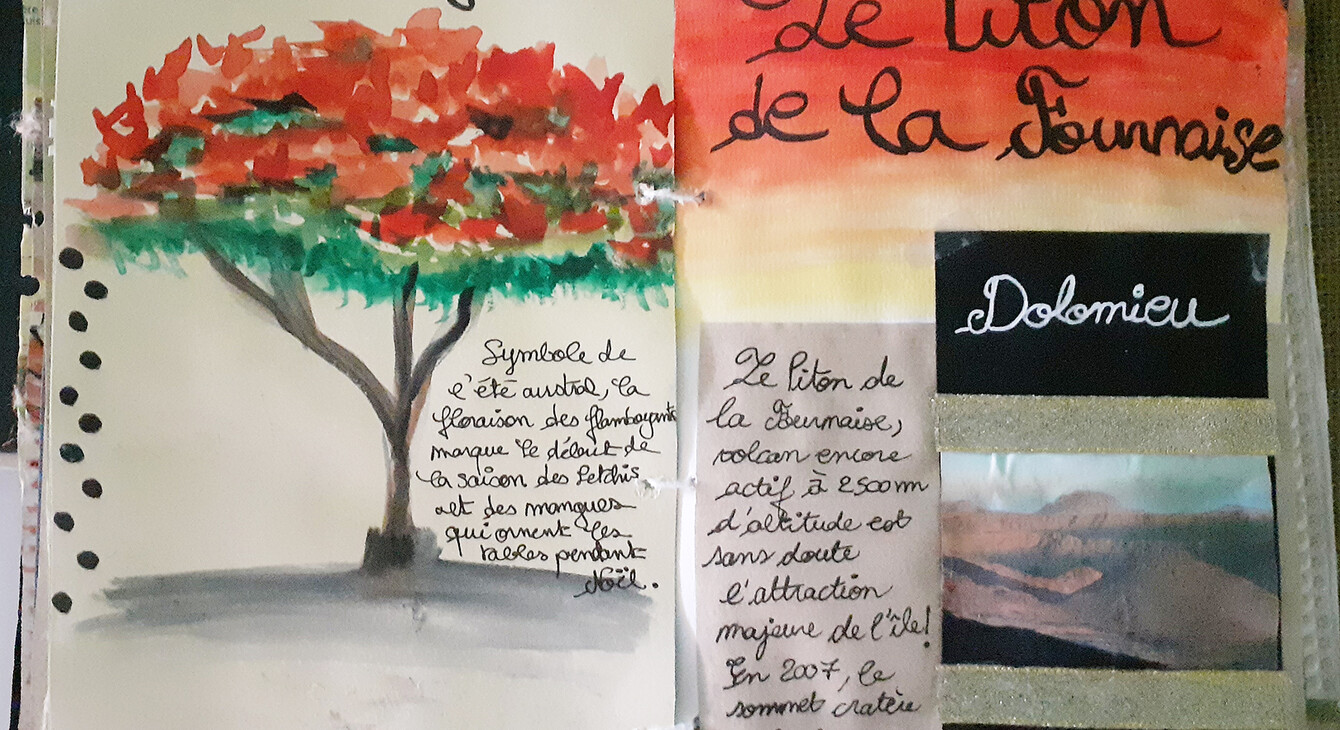 Symbole de
l'été austral, la
floraison des flamboyants
marque le début de
la saison des letchis
et des mangues
qui ornent les
tables pendant
Noël.
Le Piton
de la Fournaise
Dolomieu
Le Piton de
la Fournaise,
volcan encore
actif à 2500m
d'altitude est
sans doute
l'attraction
majeure de l'île!
En 2007, le
sommet cratère